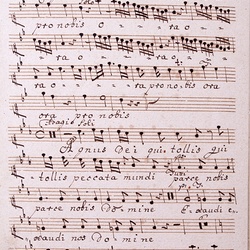 pro nobis O - - ra o - -
ta o - - ra o - -
ta o - - ra pro nobis ora
ora pro nobis
Agnus Dei qui tollis qui
tollis peccata mundi parce nobis
parce nobis Domine Exaudi e
exaudi nos Domine